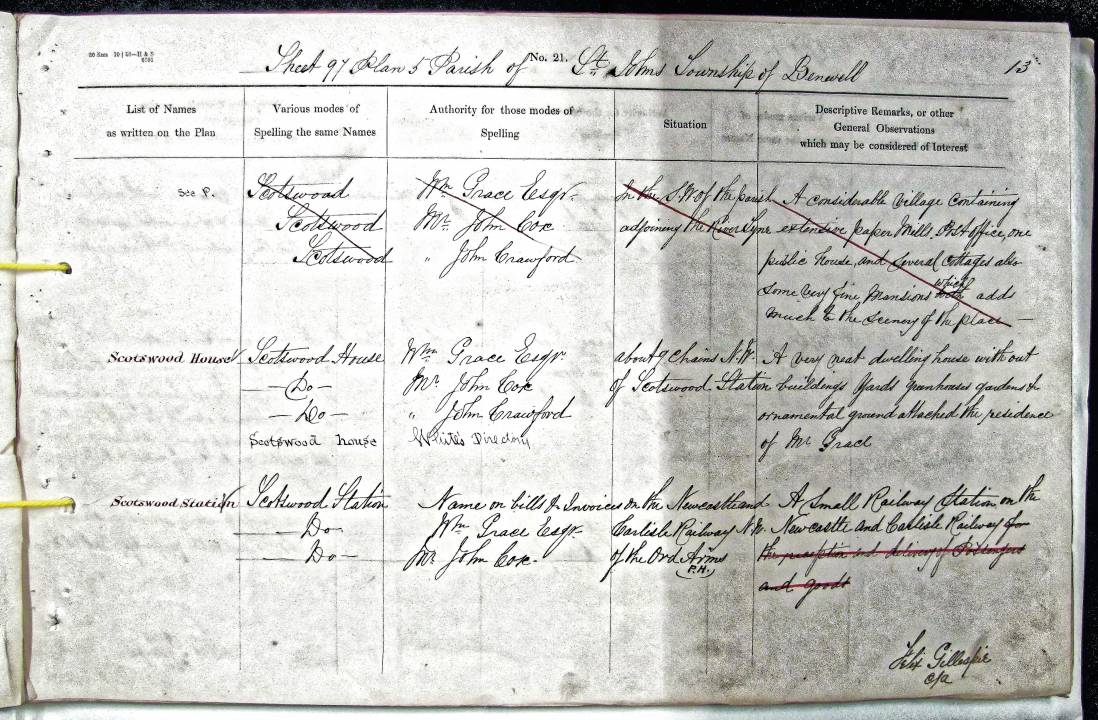 Sheet 97 Plan 5 Parish of No. 21. St. Johns Township of Benwell 13
List of Names
as written on the Plan
Various modes of
Spelling the same Names
Authority for those modes of
Spelling
Situation
Descriptive Remarks, or other
General Observations
which may be considered of Interest
See P. Scotswood Wm. Grace Esqr. In the S.W of the parish A considerable village containing
Scotswood Mr. John Cox adjoining the River Tyne extensive paper Mills. Post office, one
Scotswood " John Crawford public house, and several Cottages also
some very fine Mansions which adds
much to the scenery of the place —
Scotswood House Scotswood House Wm. Grace Esqr. about 9 Chains N.W. A very neat dwelling house with out
— Do — Mr. John Cox of Scotswood Station buildings yards greenhouses gardens &
— Do — " John Crawford ornamental ground attached the residence
Scotswood house White's Directory of Mr Grace
Scotswood Station Scotswood Station Name on bills & Invoices on the Newcastle and A Small Railway Station on the
— Do — Wm. Grace Esqr. Carlisle Railway N.W. Newcastle and Carlisle Railway for
— Do — Mr. John Cox. of the Ord Arms the reception and delivery of Passengers
P.H.
and goods
Felix Gillespie
c/a